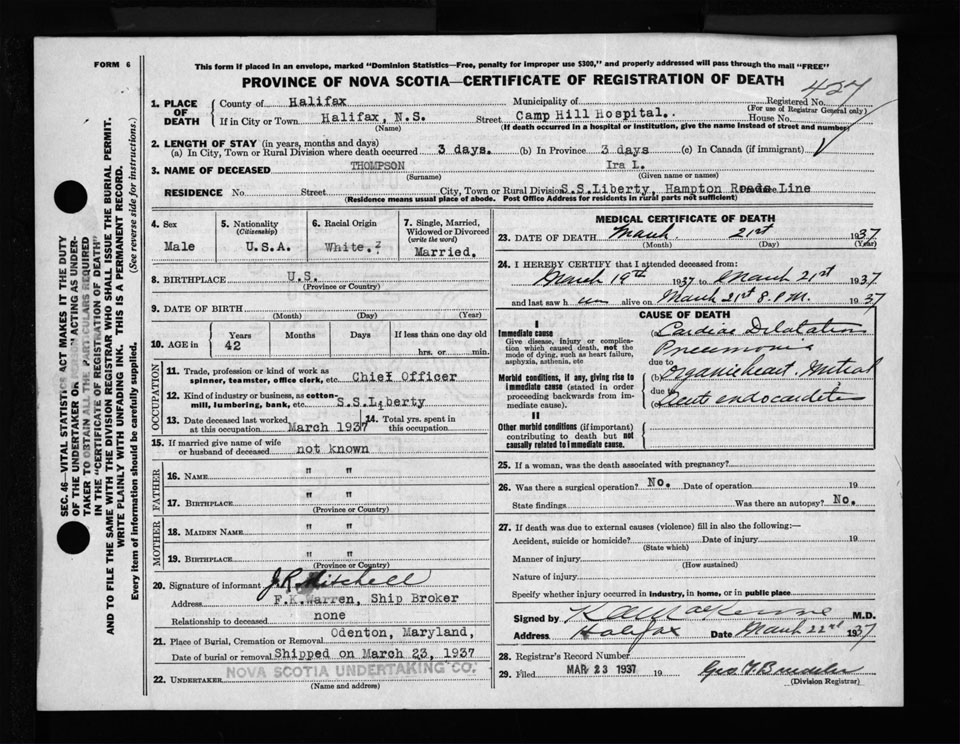 FORM 6
This form if placed in an envelope, marked "Dominion Statistics—Free, penalty for improper use $300," and properly addressed will pass through the mail "FREE"
PROVINCE OF NOVA SCOTIA—CERTIFICATE OF REGISTRATION OF DEATH
427
SEC. 46—VITAL STATISTICS ACT MAKES IT THE DUTY
OF THE UNDERTAKER OR PERSON ACTING AS UNDER-
TAKER TO OBTAIN ALL THE PARTICULARS REQUIRED
IN THE "CERTIFICATE OF REGISTRATION OF DEATH"
AND TO FILE THE SAME WITH THE DIVISION REGISTRAR WHO SHALL ISSUE THE BURIAL PERMIT.
WRITE PLAINLY WITH UNFADING INK. THIS IS A PERMANENT RECORD.
Every item of information should be carefully supplied. (See reverse side for instructions.)
1. PLACE OF DEATH
County of Halifax Municipality of Registered No.
(For use of Registrar General only)
If in City or Town Halifax, N.S. Street Camp Hill Hospital. House No.
(Name) (If death occurred in a hospital or institution, give the name instead of street and number)
2. LENGTH OF STAY (in years, months and days)
(a) In City, Town or Rural Division where death occurred 3 days. (b) In Province 3 days (c) In Canada (if immigrant)
3. NAME OF DECEASED THOMPSON Ira L.
(Surname) (Given name or names)
RESIDENCE No. Street City, Town or Rural Division S.S.Liberty, Hampton Roads Line
(Residence means usual place of abode. Post Office Address for residents in rural parts not sufficient)
4. Sex
Male
5. Nationality
(Citizenship)
U.S.A.
6. Racial Origin
White.
7. Single, Married,
Widowed or Divorced
(write the word)
Married.
8. BIRTHPLACE U.S.
(Province or Country)
9. DATE OF BIRTH
(Month) (Day) (Year)
10. AGE in
Years Months Days If less than one day old
42 hrs. or min.
OCCUPATION
11. Trade, profession or kind of work as
spinner, teamster, office clerk, etc. Chief Officer
12. Kind of industry or business, as cotton-
mill, lumbering, bank, etc. S.S.Liberty
13. Date deceased last worked
at this occupation March 1937
14. Total yrs. spent in
this occupation
15. If married give name of wife
or husband of deceased not known
FATHER
16. NAME " "
17. BIRTHPLACE " "
(Province or Country)
MOTHER
18. MAIDEN NAME " "
19. BIRTHPLACE " "
(Province or Country)
20. Signature of informant J.R. Mitchell
Address F.K.Warren, Ship Broker
Relationship to deceased none
21. Place of Burial, Cremation or Removal Odenton, Maryland,
Date of burial or removal Shipped on March 23, 1937
22. UNDERTAKER NOVA SCOTIA UNDERTAKING CO.
(Name and address)
MEDICAL CERTIFICATE OF DEATH
23. DATE OF DEATH March 21st 1937
(Month) (Day) (Year)
24. I HEREBY CERTIFY that I attended deceased from:
March 19th 1937 to March 21st 1937
and last saw h im alive on March 21st 8 P.M. 1937
CAUSE OF DEATH
I
Immediate cause
Give disease, injury or complica-
tion which caused death, not the
mode of dying, such as heart failure,
asphyxia, asthenia, etc
(a) Cardiac Dilatation
Pneumonia
Morbid conditions, if any, giving rise to
immediate cause (stated in order
proceeding backwards from im-
mediate cause).
(b) Organic heart. Mitral
due to
(c) Acute endocarditis
II
Other morbid conditions (if important)
contributing to death but not
causally related to immediate cause.
25. If a woman, was the death associated with pregnancy?
26. Was there a surgical operation? No. Date of operation 19
State findings Was there an autopsy? No.
27. If death was due to external causes (violence) fill in also the following:—
Accident, suicide or homicide? Date of injury 19
(State which)
Manner of injury
(How sustained)
Nature of injury
Specify whether injury occurred in industry, in home, or in public place
Signed by M.D.
Address Halifax Date March 22nd 1937
28. Registrar's Record Number
29. Filed MAR 23 1937 19
(Division Registrar)